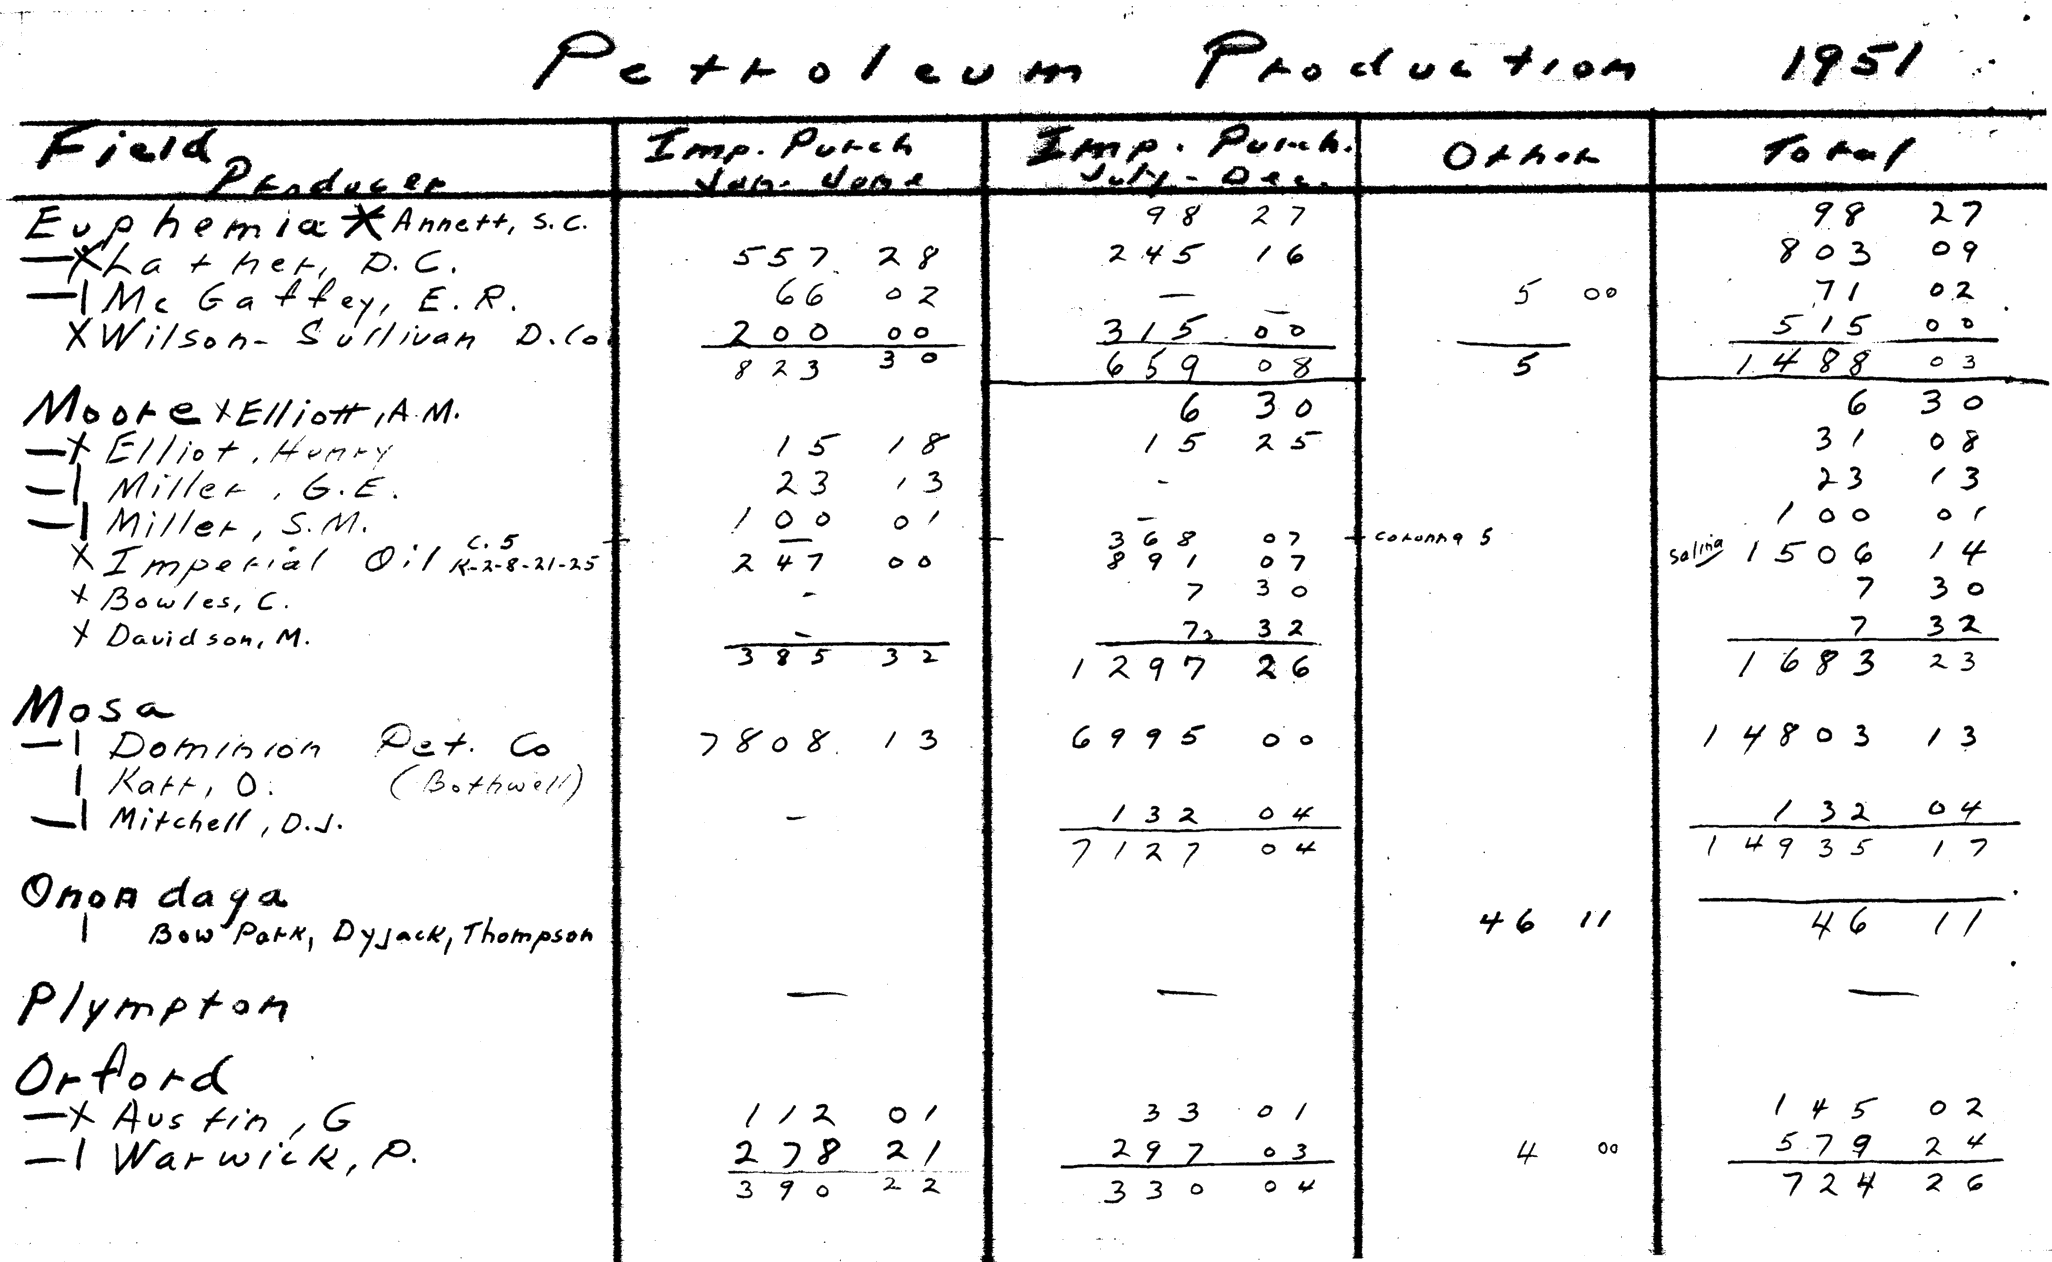 Petroleum Production 1951
Field Producer Imp. Purch Jan. June Imp. Purch. July - Dec. Other Total
Euphemia X Annett, S.C. 98 27 98 27
— X Lather, D.C. 557 28 245 16 803 09
— | Mc Gaffey, E.R. 66 02 — 5 00 71 02
X Wilson-Sullivan D.Co. 200 00 315 00 515 00
823 30 659 08 5 1488 03
Moore x Elliott, A.M. 6 30 6 30
— x Elliot, Henry 15 18 15 25 31 08
— | Miller, G.E. 23 13 - 23 13
— | Miller, S.M. 100 01 — 100 01
C. 5 — 368 07 Corunna 5
X Imperial Oil K-2-8-21-25 247 00 891 07 Salina 1506 14
x Bowles, C. - 7 30 7 30
x Davidson, M. - 7 32 7 32
385 32 1297 26 1683 23
Mosa
— | Dominion Pet. Co 7808 13 6995 00 14803 13
| Karr, O. (Bothwell)
— | Mitchell, D.J. - 132 04 132 04
7127 04 14935 17
Onondaga
| Bow Park, Dyjack, Thompson 46 11 46 11
Plympton — — —
Orford
— x Austin, G 112 01 33 01 145 02
— | Warwick, P. 278 21 297 03 4 00 579 24
390 22 330 04 724 26